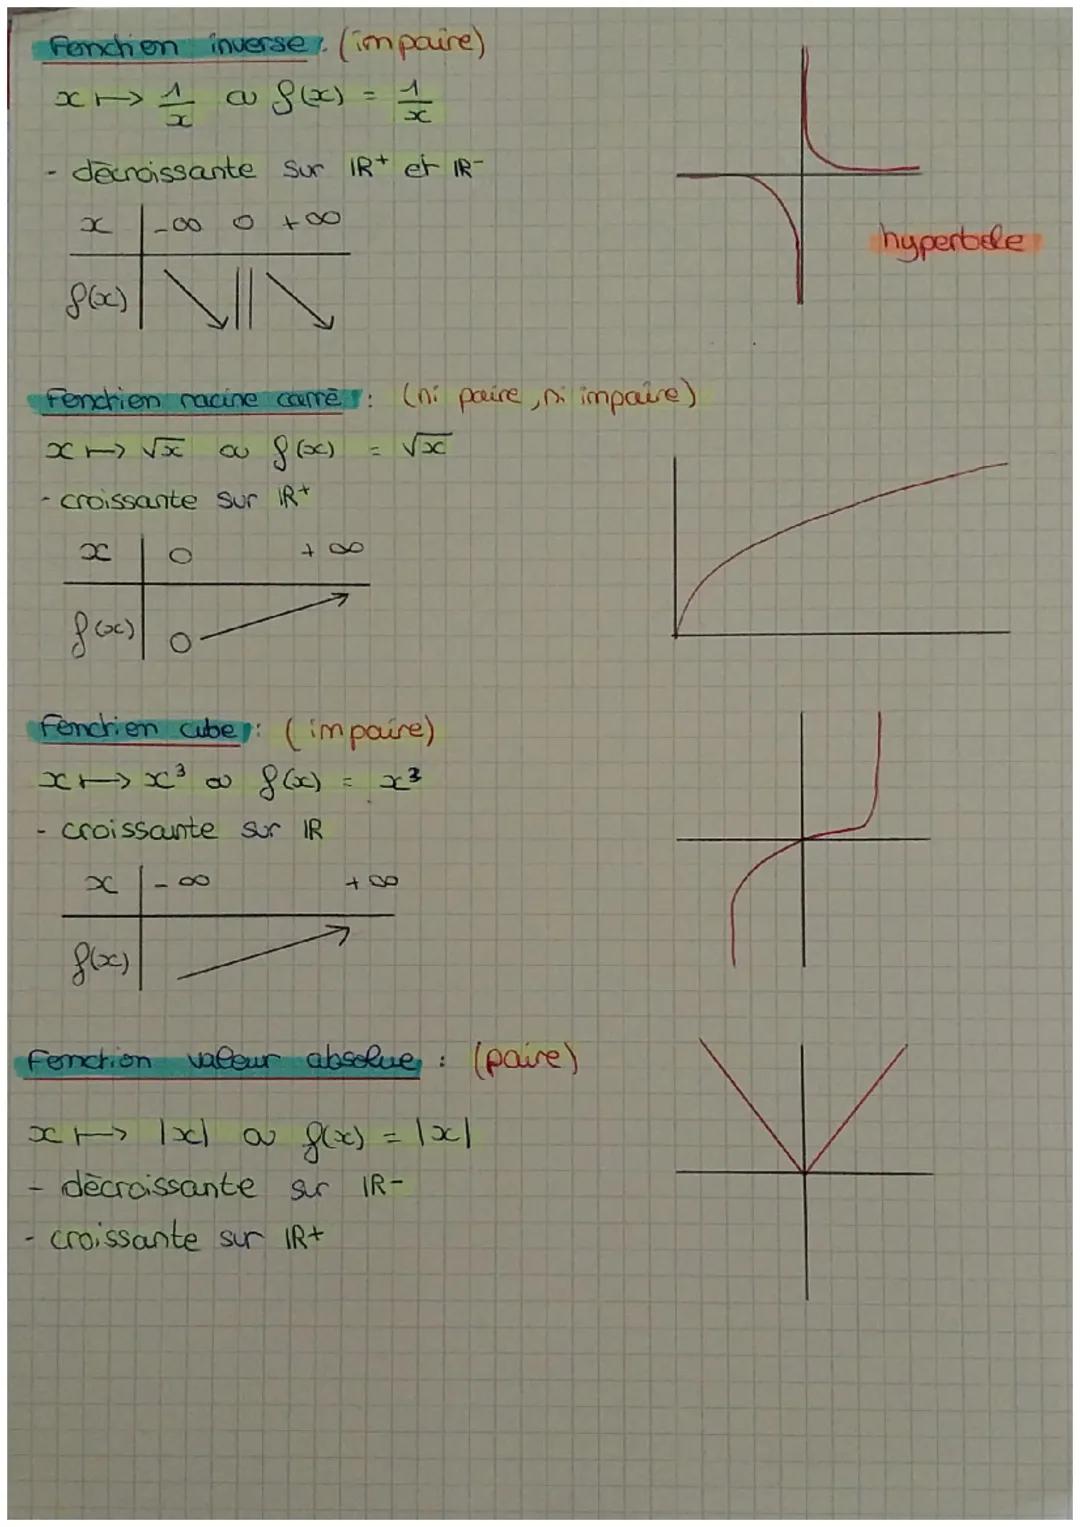 Fonction inverse : (impaire)
x ↦ 1/x ou f(x) = 1/x
- décroissante sur IR+ et IR-
x | -∞ 0 +∞
f(x) | ↘ || ↘
hyperbole
Fonction racine carré : (ni paire, ni impaire)
x ↦ √x ou f(x) = √x
- croissante sur IR+
x | 0 +∞
f(x) | 0 ↗
Fonction cube : (impaire)
x ↦ x³ ou f(x) = x³
- croissante sur IR
x | -∞ +∞
f(x) | ↗
Fonction valeur absolue : (paire)
x ↦ |x| ou f(x) = |x|
- décroissante sur IR-
- croissante sur IR+